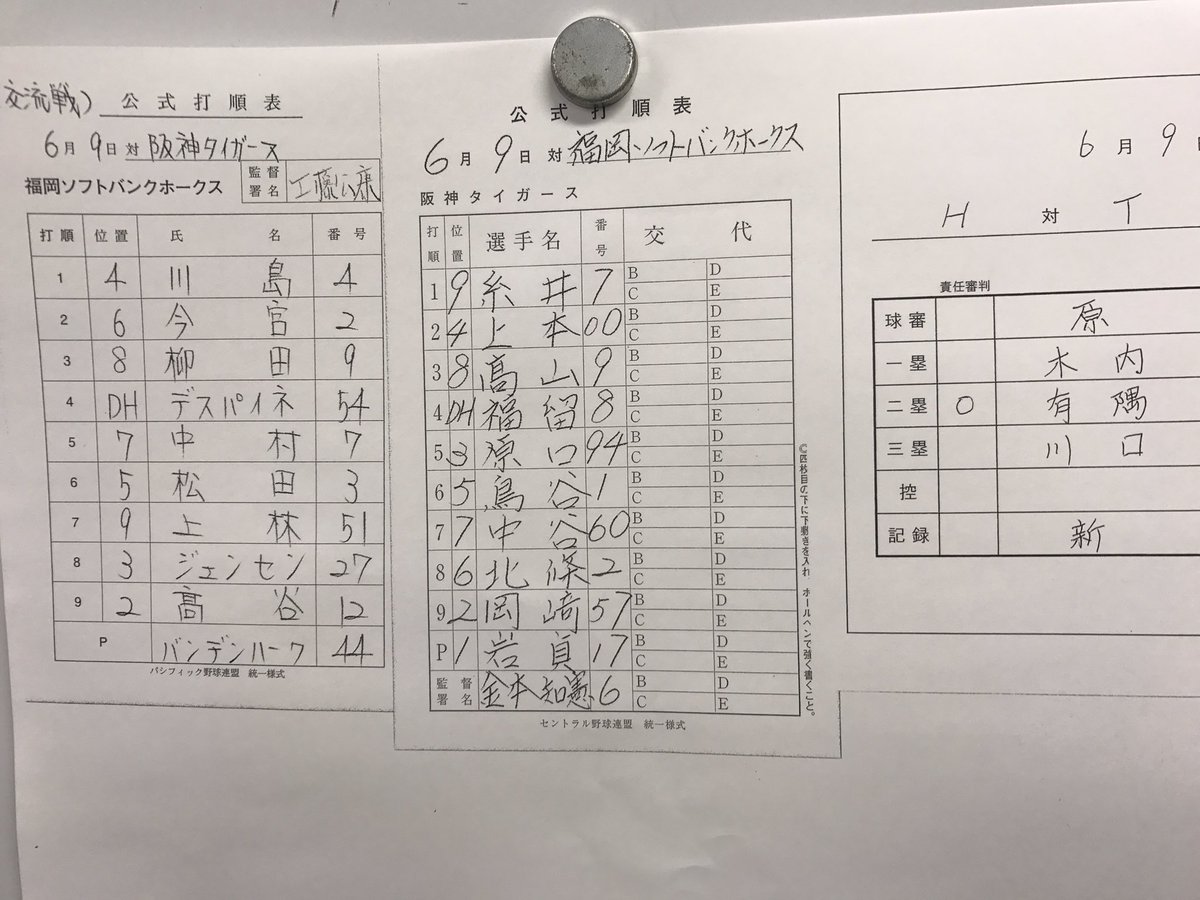 交流戦) 公式打順表
6月9日対 阪神タイガース
福岡ソフトバンクホークス 監督署名 工藤公康
打順 位置 氏名 番号
1 4 川島 4
2 6 今宮 2
3 8 柳田 9
4 DH デスパイネ 54
5 7 中村 7
6 5 松田 3
7 9 上林 51
8 3 ジェンセン 27
9 2 高谷 12
P バンデンハーク 44
パシフィック野球連盟 統一様式
公式打順表
6月9日対 福岡ソフトバンクホークス
阪神タイガース
打順 位置 選手名 番号 交代
1 9 糸井 7 B D
C E
2 4 上本 00 B D
C E
3 8 髙山 9 B D
C E
4 DH 福留 8 B D
C E
5 3 原口 94 B D
C E
6 5 鳥谷 1 B D
C E
7 7 中谷 60 B D
C E
8 6 北條 2 B D
C E
9 2 岡﨑 57 B D
C E
P 1 岩貞 17 B D
C E
監督署名 金本知憲 6 B D
C E
セントラル野球連盟 統一様式
◎四枚目の下に下敷きを入れ ボールペンで強く書くこと。
6月9
H 対 T
責任審判
球審 原
一塁 木内
二塁 ○ 有隅
三塁 川口
控
記録 新